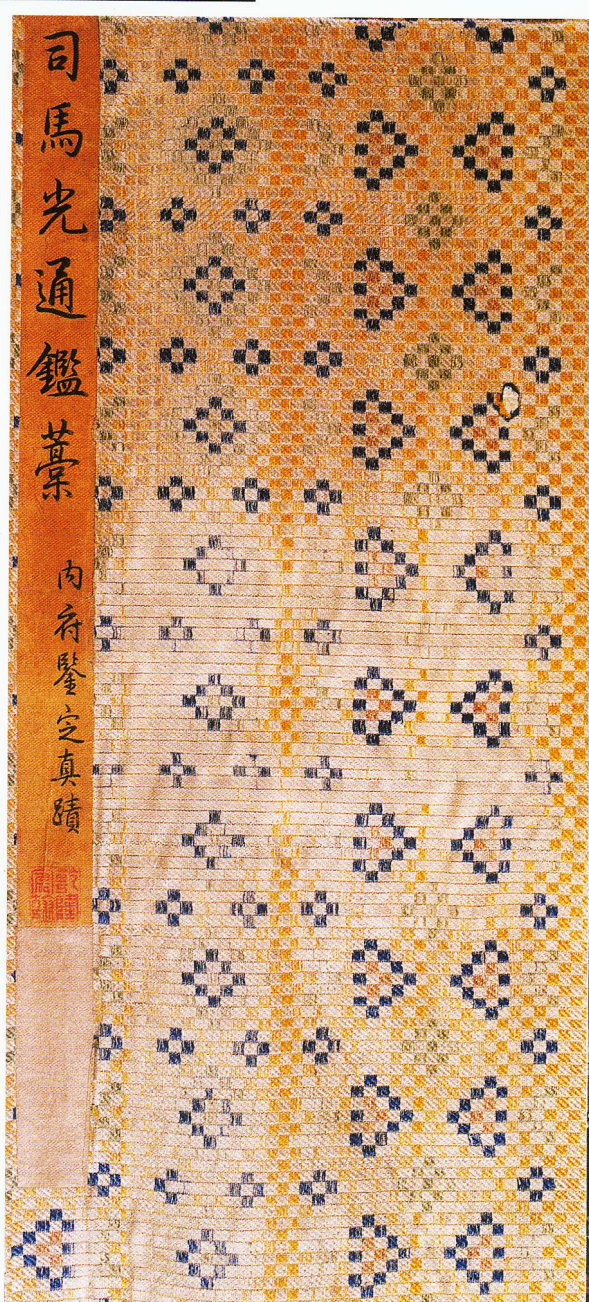 司馬光通鑑藁
内府鑒定真蹟